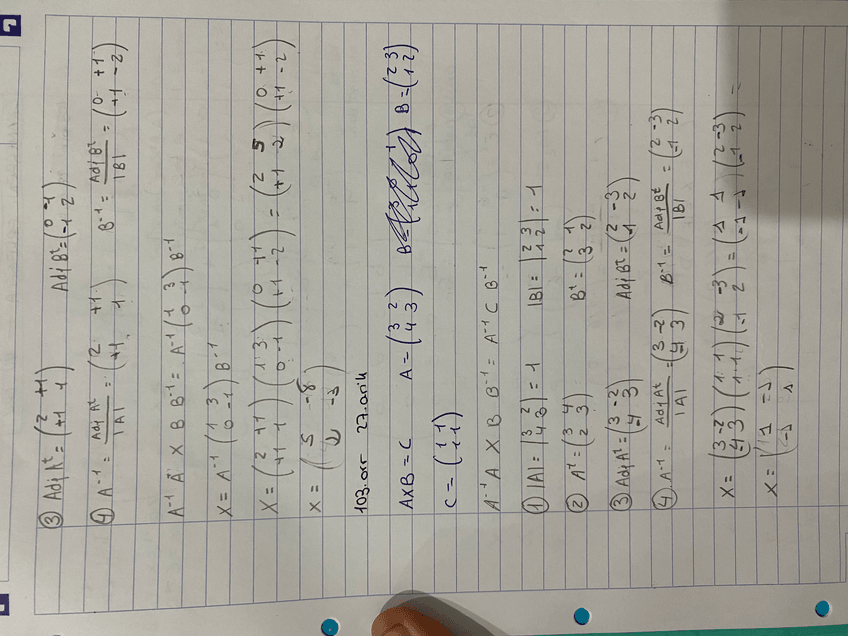 ③ Adj Aᵗ = (2 +1 / +1 1) Adj Bᵗ = (0 -1 / -1 2)
④ A⁻¹ = Adj Aᵗ / |A| = (2 +1 / +1 1) B⁻¹ = Adj Bᵗ / |B| = (0 +1 / +1 -2)
A⁻¹ A X B B⁻¹ = A⁻¹ (1 3 / 0 -1) B⁻¹
X = A⁻¹ (1 3 / 0 -1) B⁻¹
X = (2 +1 / +1 1) (1 3 / 0 -1) (0 +1 / +1 -2) = (2 5 / +1 2) (0 +1 / +1 -2)
X = (5 -8 / 2 -3)
103.orr 27.arik
AXB = C A = (3 2 / 4 3) B = (2 3 / 1 2)
C = (1 1 / 1 1)
A⁻¹ A X B B⁻¹ = A⁻¹ C B⁻¹
① |A| = |3 2 / 4 3| = 1 |B| = |2 3 / 1 2| = 1
② Aᵗ = (3 4 / 2 3) Bᵗ = (2 1 / 3 2)
③ Adj Aᵗ = (3 -2 / -4 3) Adj Bᵗ = (2 -3 / -1 2)
④ A⁻¹ = Adj Aᵗ / |A| = (3 -2 / -4 3) B⁻¹ = Adj Bᵗ / |B| = (2 -3 / -1 2)
X = (3 -2 / -4 3) (1 1 / 1 1) (2 -3 / -1 2) = (1 1 / -1 -1) (2 -3 / -1 2) =
X = (1 -1 / -1 1)